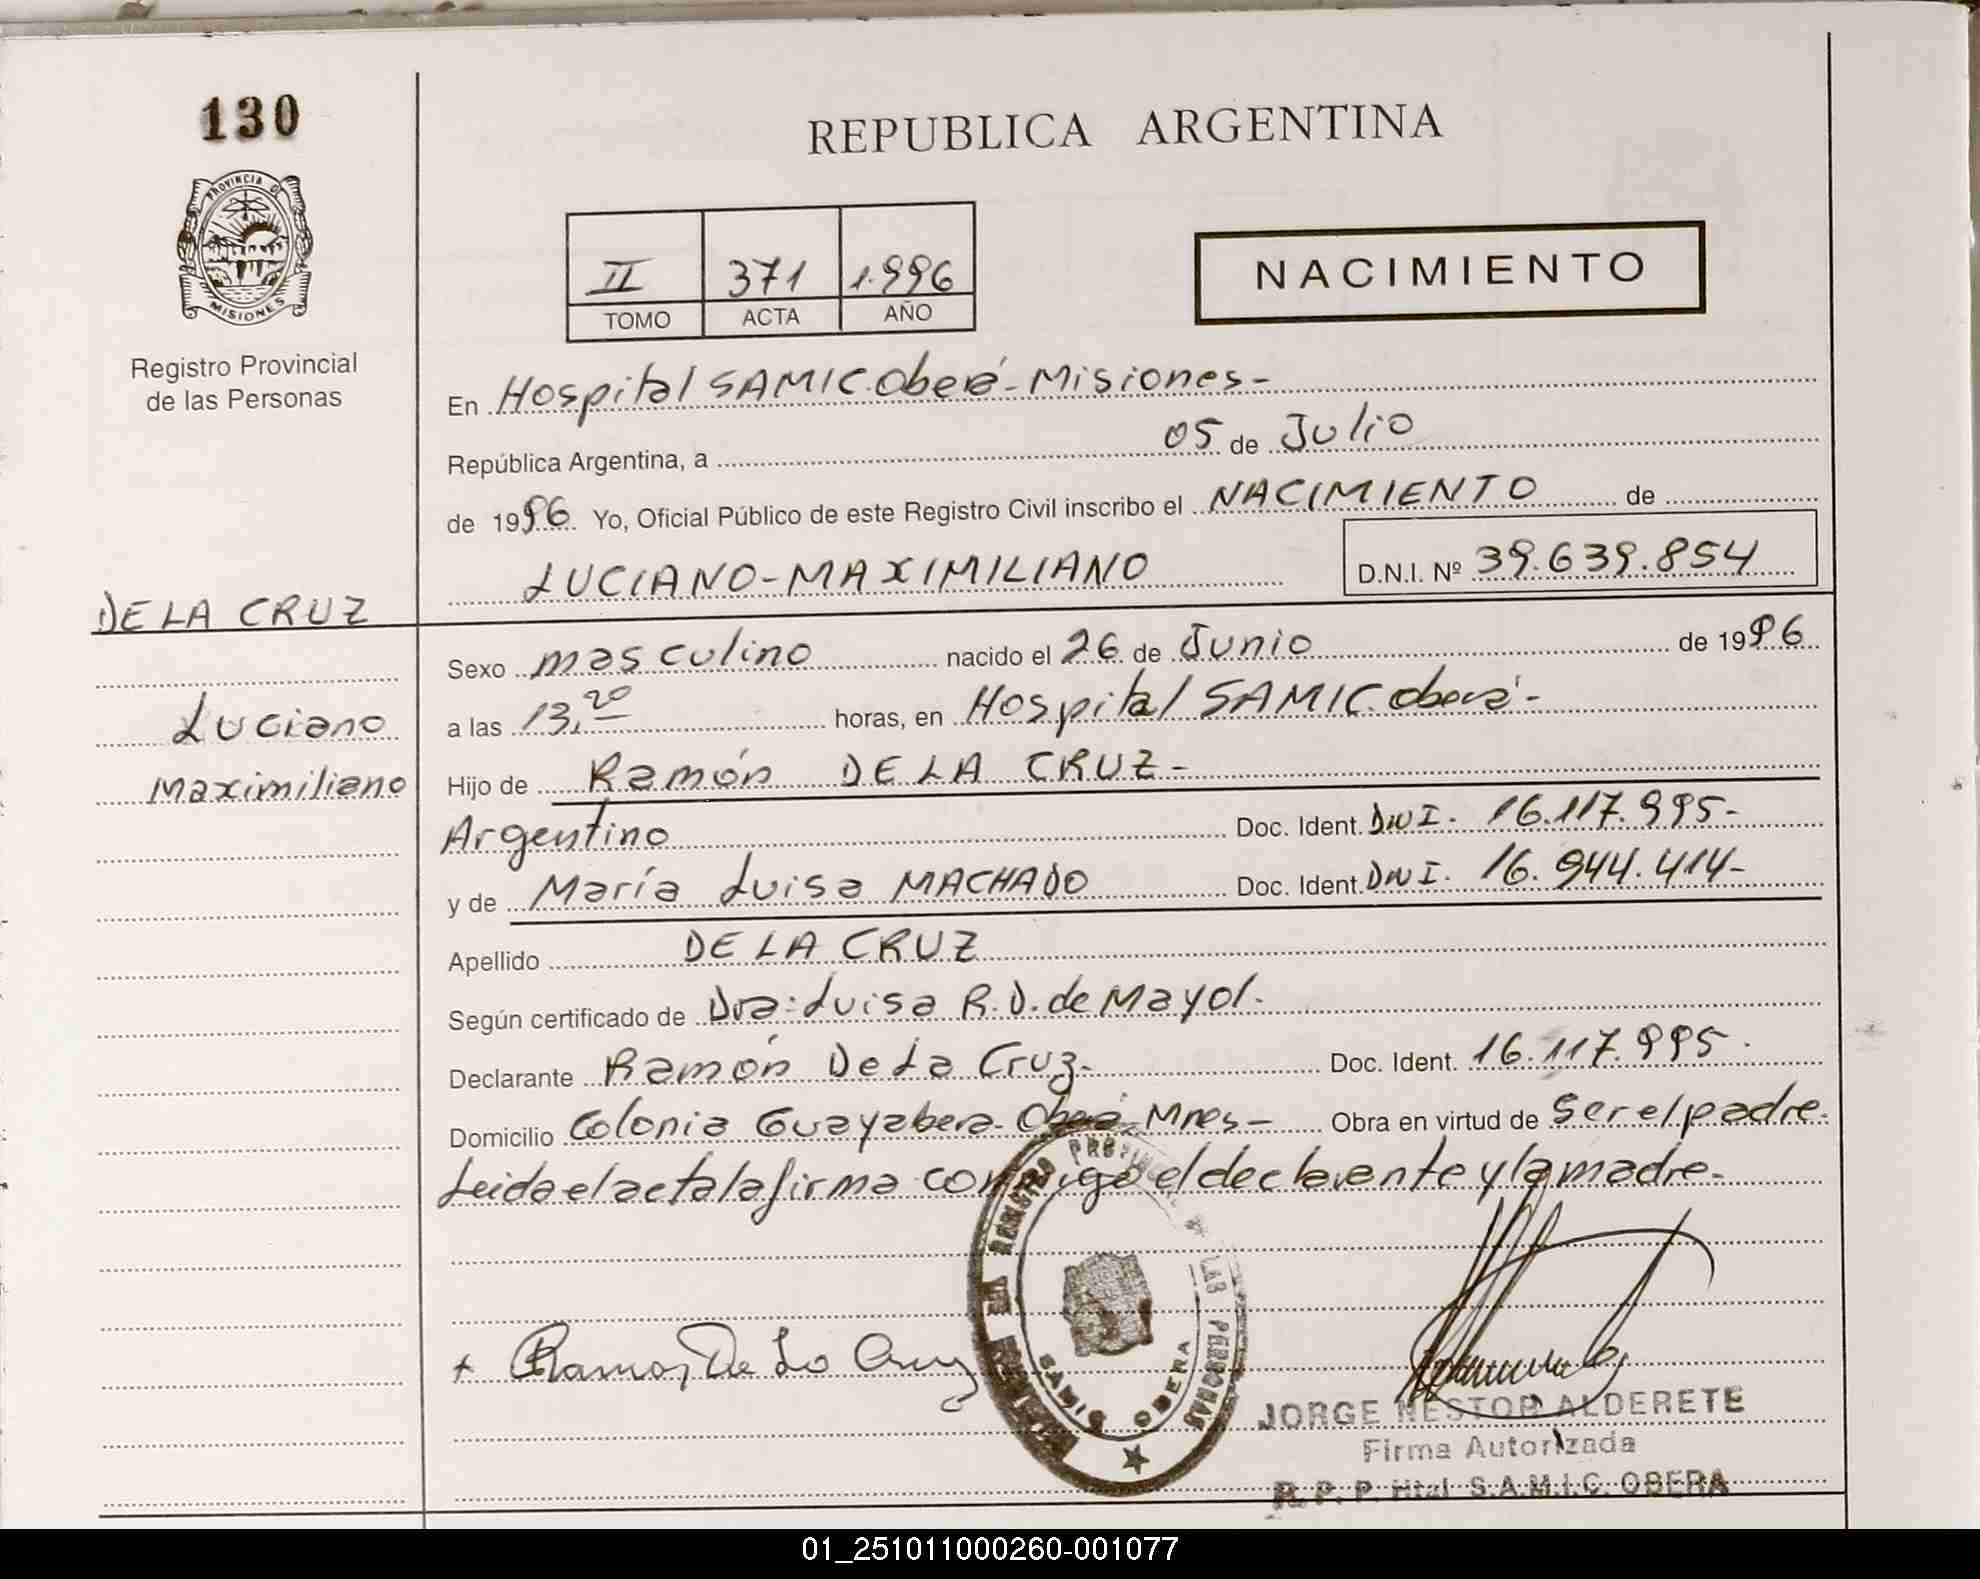 130
PROVINCIA DE
MISIONES
Registro Provincial
de las Personas
REPUBLICA ARGENTINA
II 371 1.996
TOMO ACTA AÑO
NACIMIENTO
En Hospital SAMIC. Oberá - Misiones -
República Argentina, a 05 de Julio
de 1996 Yo, Oficial Público de este Registro Civil inscribo el NACIMIENTO de
LUCIANO - MAXIMILIANO D.N.I. Nº 39.639.854
DE LA CRUZ
Luciano
Maximiliano
Sexo masculino nacido el 26 de Junio de 1996
a las 13,20 horas, en Hospital SAMIC. Oberá -
Hijo de Ramón DE LA CRUZ -
Argentino Doc. Ident. DNI. 16.117.995 -
y de María Luisa MACHADO Doc. Ident. DNI. 16.944.414 -
Apellido DE LA CRUZ
Según certificado de Dra: Luisa R. D. de Mayol.
Declarante Ramón De La Cruz - Doc. Ident. 16.117.995.
Domicilio Colonia Guayabera - Oberá - Mnes - Obra en virtud de Ser el padre.
Leida el acta la firma conmigo el declarante y la madre -
REGISTRO PROVINCIAL DE LAS PERSONAS
SAMIC OBERA
+ Ramon De La Cruz
JORGE NESTOR ALDERETE
Firma Autorizada
R. P. P. Htal S.A.M.I.C. OBERA
01_251011000260-001077